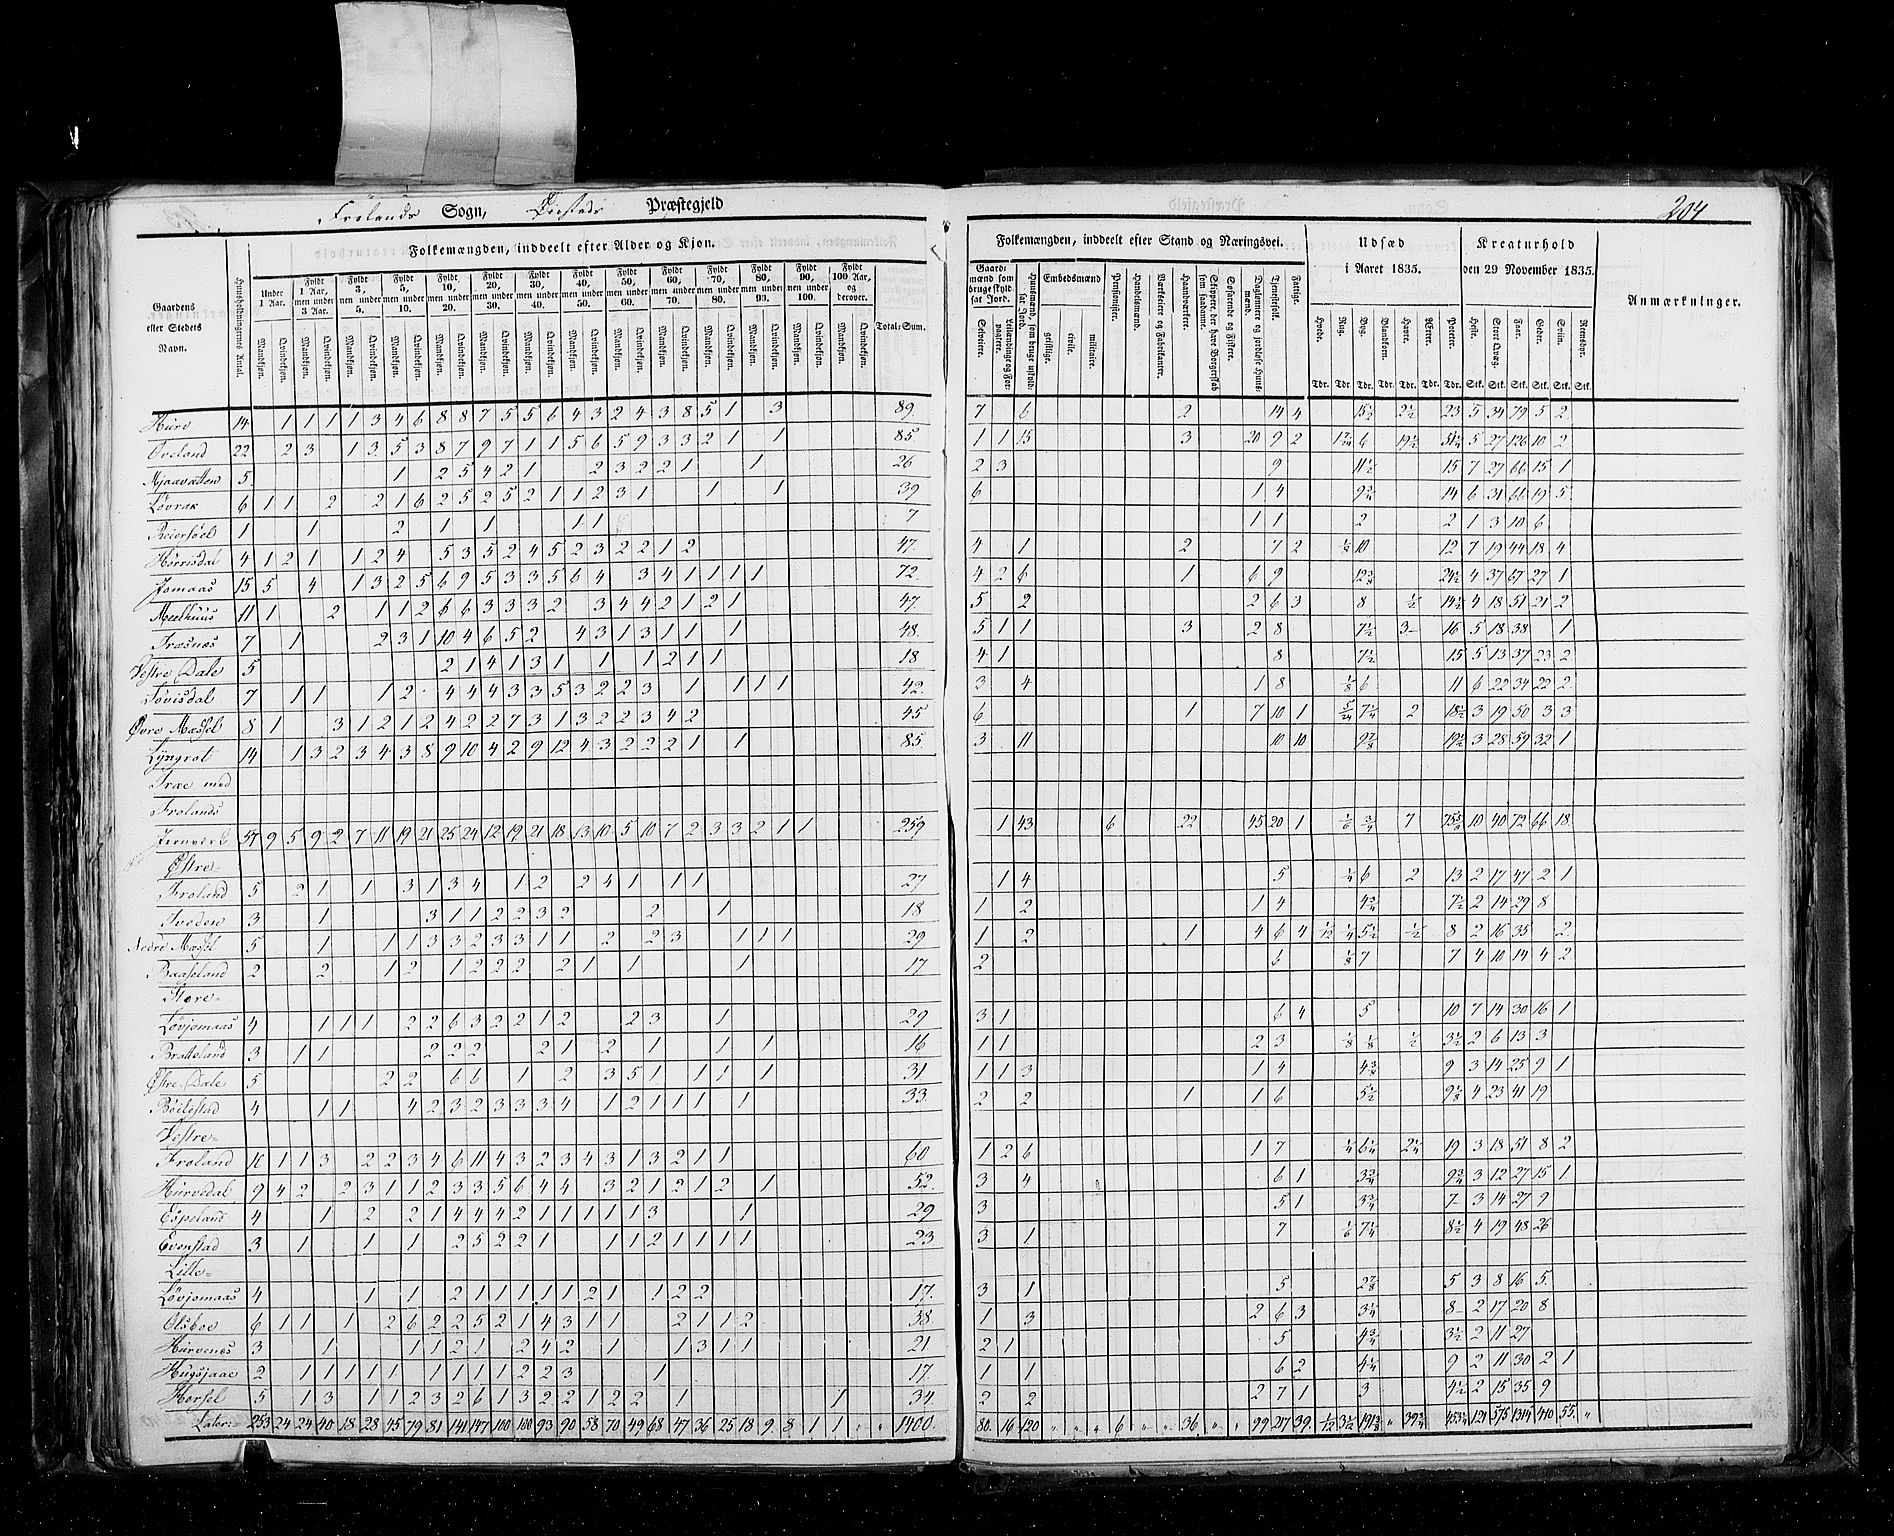 Frolands Sogn, Præstegjeld
204
Gaardens eller Steders Navn.
Huusholdningernes Antal.
Folkemængden, inddeelt efter Alder og Kjøn.
Under 1 Aar.
Fyldt 1 Aar, men under 3 Aar.
Fyldt 3, men under 5.
Fyldt 5, men under 10.
Fyldt 10, men under 20.
Fyldt 20, men under 30.
Fyldt 30, men under 40.
Fyldt 40, men under 50.
Fyldt 50, men under 60.
Fyldt 60, men under 70.
Fyldt 70, men under 80.
Fyldt 80, men under 90.
Fyldt 90, men under 100.
Fyldt 100 Aar, og derover.
Mandkjøn. Qvindekjøn.
Total-Sum.
Folkemængden, inddeelt efter Stand og Næringsvei.
Gaardmænd som bruge skyldsat Jord.
Selveiere.
Leilændinge og Forpagtere.
Huusmænd, som bruge uskyldsat Jord.
Embedsmænd
geistlige. civile. militaire.
Pensionister.
Handelsmænd.
Værkseiere og Fabrikanter.
Haandværkere.
Skippere, der have Borgerskab som saadanne.
Søfarende og Fiskere.
Daglønnere og jordløse Huusmænd.
Tjenestefolk.
Fattige.
Udsæd i Aaret 1835.
Hvede. Rug. Byg. Blandkorn. Havre. Ærter. Poteter.
Tdr. Tdr. Tdr. Tdr. Tdr. Tdr. Tdr.
Kreaturhold den 29 November 1835.
Heste. Stort Qvæg. Faar. Geder. Sviin. Rensdyr.
Stk. Stk. Stk. Stk. Stk. Stk.
Anmærkninger.
Hurv 14 1 1 1 1 3 4 6 8 8 7 5 5 6 4 3 2 4 3 8 5 1 3 89. 7 6 2 14 4 15½ 2½ 23 5 34 79 5 2
Oveland 22 2 3 1 3 5 3 8 7 9 7 1 1 5 6 5 9 3 3 2 1 1 85. 1 1 15 3 20 9 2 6 19½ 5 27 126 10 2
Mjaavatten 5 1 2 5 4 2 1 2 3 2 2 1 1 26 2 3 9 11½ 15 7 27 66 15 1
Løvrak 6 1 1 2 2 1 6 2 5 2 5 2 1 1 2 3 1 1 1 39 6 1 4 9¾ 14 6 31 66 19 5
Reiersøel 1 1 2 1 1 1 1 7 1 1 2 2 1 3 10 6
Hørrisdal 4 1 2 1 1 2 4 5 3 5 2 4 5 2 3 2 2 1 2 47. 4 1 2 7 2 10 12 7 19 44 18 4
Jomaas 15 5 4 1 3 2 5 6 9 5 3 3 5 6 4 3 4 1 1 1 1 72. 4 2 6 1 6 9 24½ 4 37 67 27 1
Meelhuus 11 1 2 1 1 2 6 6 3 3 3 2 3 4 4 2 1 2 1 47. 5 2 2 6 3 8 ½ 14½ 4 18 51 21 2
Træsnæs 7 1 2 3 1 10 4 6 5 2 4 3 1 3 1 1 1 48. 5 1 1 3 2 8 7½ 3 16 5 18 38 1
Vestre Dale 5 2 1 4 1 3 1 1 1 2 1 1 18 4 1 8 7½ 15 5 13 37 23 2
Løvisdal 7 1 1 1 2 4 4 4 3 3 5 3 2 2 3 1 1 1 1 42. 3 4 1 8 ⅛ 6 11 6 22 34 22 2
Øvre Mæssel 8 1 3 1 2 1 2 4 2 2 7 3 1 3 2 2 3 4 2 45 6 1 7 10 1 7¼ 2 18½ 3 19 50 3 3
Lyngrot 14 1 3 2 3 4 3 8 9 10 4 2 9 12 4 3 2 2 2 1 1 85. 3 11 10 10 9⅞ 19½ 3 28 59 32 1
Træ med
Frolands
Jernverk 57 9 5 9 2 7 11 19 21 25 24 12 19 21 18 13 10 5 10 7 2 3 3 2 1 1 259 1 43 6 22 45 20 1 ¾ 7 10 40 72 66 18
Østre
Froland 5 2 1 1 3 1 3 4 1 2 2 4 1 1 1 27 1 4 5 ¼ 6 2 13 2 17 47 2 1
Tveden 3 1 3 1 1 2 2 3 2 2 1 18 1 2 1 4 4¾ 7½ 2 14 29 8
Nedre Mæssel 5 1 1 1 3 3 2 3 3 1 1 2 2 3 1 1 1 29 1 2 1 4 6 4 ¼ 5½ ½ 8 2 16 35 2
Baaseland 2 2 1 2 1 2 2 2 2 1 1 1 17 2 6 ⅛ 7 7 4 10 14 4 2
Store
Løvjomaas 4 1 1 1 2 2 6 3 2 2 1 2 2 3 1 29 3 1 6 4 5 10 7 14 30 16 1
Bratteland 3 1 1 2 2 2 2 1 2 1 1 1 16 1 1 2 3 ⅛ ½ 3½ 2 6 13 3
Østre Dale 5 2 2 6 6 1 2 3 5 1 1 1 1 31 1 1 3 1 4 9 3 14 25 9 1
Bøilestad 4 1 1 4 2 3 2 3 3 3 4 1 2 1 1 1 1 33 2 2 1 1 6 5½ 4 23 41 19
Vestre
Froland 10 1 1 3 2 2 3 4 6 11 4 3 2 3 4 3 1 3 2 1 1 60 1 2 6 1 7 ¼ 6¼ 2¼ 19 3 18 51 8 2
Hurvedal 9 4 2 2 3 1 1 2 3 3 5 6 4 4 3 2 1 2 1 2 1 52. 3 4 6 1 3¾ 9¾ 3 12 27 15 1
Espeland 4 1 2 2 1 4 4 4 2 1 1 1 1 1 3 1 29 3 5 1 3¾ 7 3 14 27 9
Evenstad 3 1 1 1 2 5 2 2 1 1 1 2 1 1 1 1 23 3 1 7 7¼ 8½ 4 19 48 26
Lille
Løvjomaas 4 1 1 2 1 1 1 1 1 2 1 1 2 2 17. 3 1 5 2⅞ 5 3 8 16 5
Olsboe 6 1 1 1 2 6 2 2 5 2 1 4 3 1 1 2 1 1 2 38 1 3 2 6 3 3¼ 8 2 17 20 8
Hurvenes 3 1 1 1 2 1 2 4 2 1 1 3 1 1 21 2 1 5 4¾ 3½ 2 11 27
Hugsjaae 2 1 1 1 1 1 1 1 1 2 2 3 1 17. 1 1 6 2 4¼ 9 2 11 30 2 1
Morsel 5 1 3 1 1 2 3 2 6 1 3 2 2 1 2 2 1 1 34 2 2 2 7 1 3 4½ 2 15 35 9
Later: 253 24 24 40 18 28 45 79 81 141 147 100 100 93 90 58 70 49 68 47 36 25 18 9 8 1 1 " " 1400. 80. 16 120 " " " 6 " " 36 " " 99 217 39 3½ " 39¾ " 121 575 1314 410 55 "